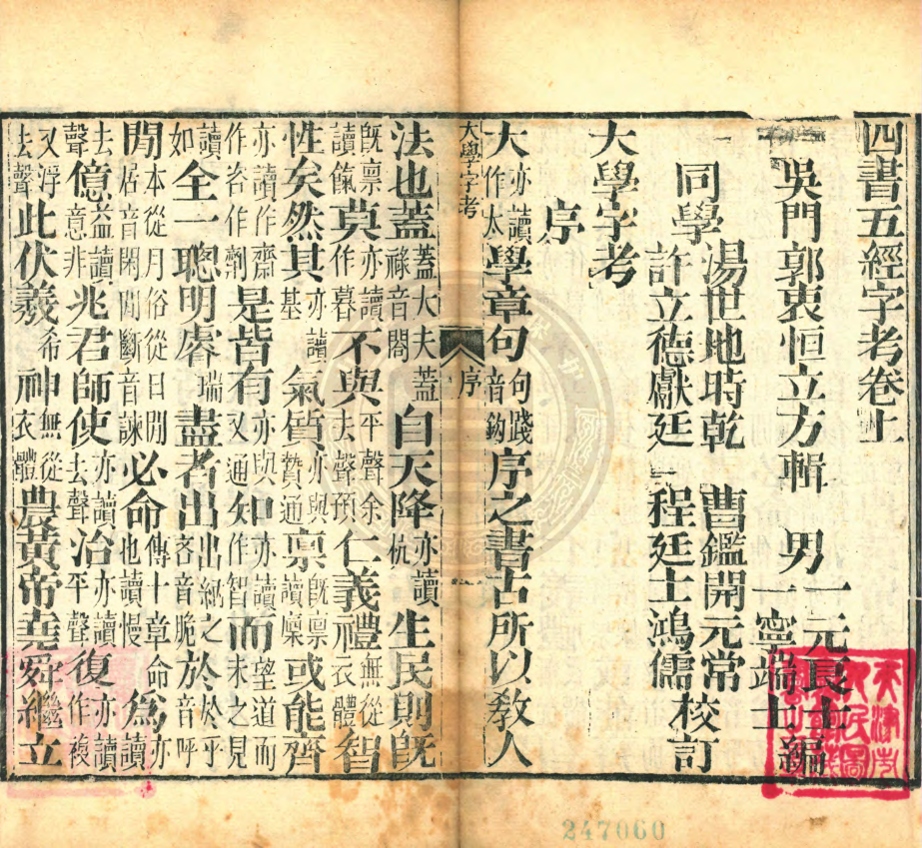 四書五經字考卷上
吳門郭衷恒立方輯　男一元長士
一寧端士編
同學湯世地時乾　曹鑑開元常
許立德獻廷　程廷士鴻儒校訂
大學字考
序
大亦讀作太學章句句踐音鉤序之書古所以教人
大學字考　序
法也蓋蓋大夫蓋祿音閤自天降亦讀杭生民則既
既稟亦讀餼莫亦讀作暮不與平聲余去聲預仁義禮無從衣體智
性矣然其亦讀基氣質亦與贄通稟既稟讀懍或能齊
亦讀作齋作咨作劑是皆有亦與又通知亦讀作智而望道而未之見
讀如全一聰明睿瑞盡者出出納之吝音脆於於乎音呼
閒本從月俗從日閒居音閑閒斷音諫必命傳十章命也讀慢為亦讀
去聲億益讀意非兆君師使亦讀去聲治亦讀平聲復亦讀作複
又浮去聲此伏羲希神無從衣體農黃帝堯舜繼立
247060